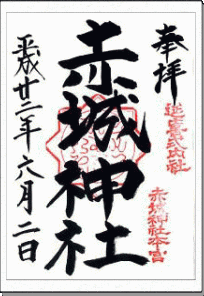 奉拝
延喜式内社
赤城神社本宮
赤城神社
平成廿二年六月二日